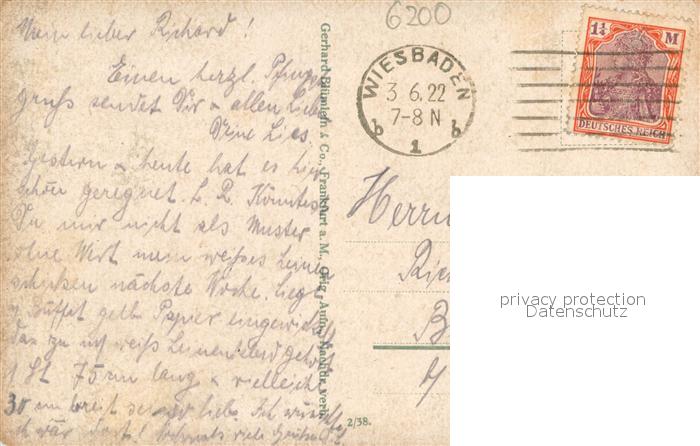 6200
Mein lieber Richard!
Einen herzl. Pfingst
gruß sendet Dir & allen Lieben
Deine Lies.
Gestern & heute hat es hier
schön geregnet. L. R. Könntest
Du mir nicht als Muster
ohne Wert mein weißes Leinen
schicken nächste Woche. Liegt
Büffet gelb Papier eingewickelt
weiß
1 St. 75 cm lang & vielleicht
30 cm breit sei so lieb. Ich
ich wär dort! Nochmals viele Grüße
Gerhard Blümlein & Co., Frankfurt a. M., Orig. Aufn. Nachdr. verb.
2/38.
WIESBADEN
3.6.22
7-8 N
b 1 b
1¼ M
DEUTSCHES REICH
Herrn
Ric
B
privacy protection
Datenschutz